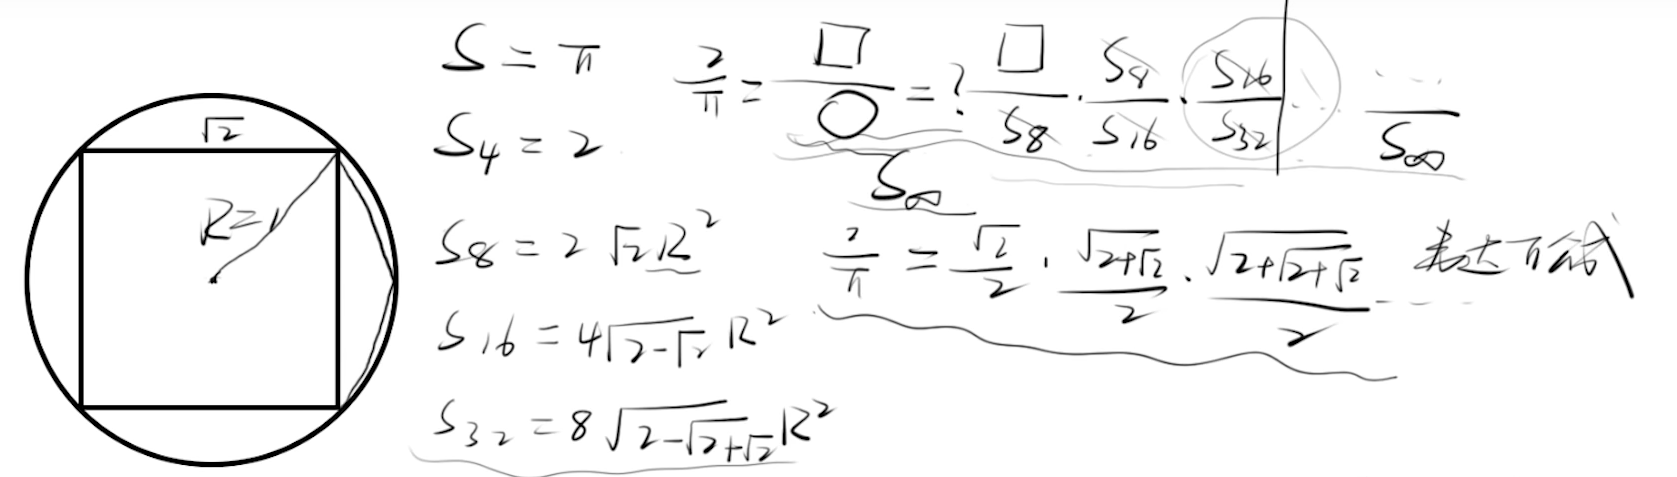 √2
R=1
S = π
S₄ = 2
S₈ = 2√2R²
S₁₆ = 4√(2-√2) R²
S₃₂ = 8√(2-√(2+√2)) R²
2/π = □/○ = ? □/S₈ · S₈/S₁₆ · S₁₆/S₃₂ · … …/S∞
S∞
2/π = √2/2 · √(2+√2)/2 · √(2+√(2+√2))/2 … 表达